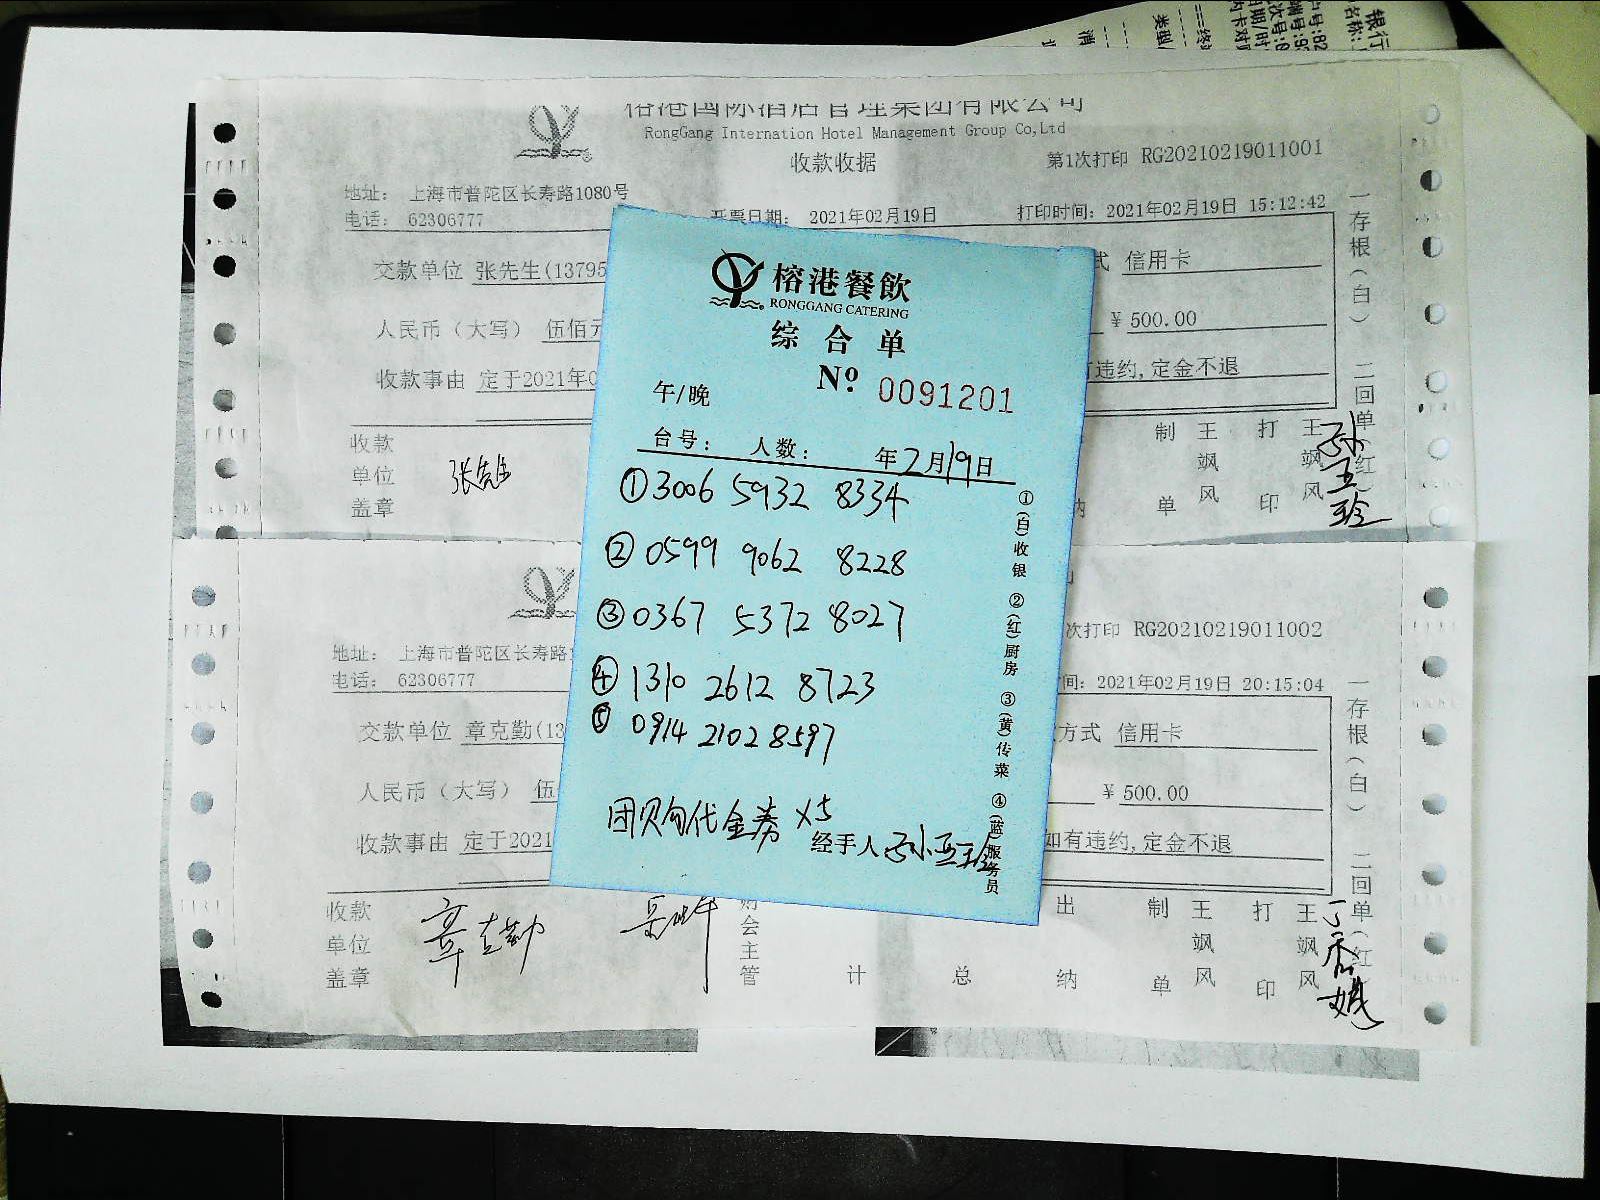 银行
类型
榕港国际酒店管理集团有限公司
RongGang Internation Hotel Management Group Co,Ltd
收款收据
第1次打印 RG20210219011001
地址: 上海市普陀区长寿路1080号
电话: 62306777
开票日期: 2021年02月19日
打印时间: 2021年02月19日 15:12:42
交款单位 张先生(13795
式 信用卡
人民币（大写） 伍佰元
¥500.00
收款事由 定于2021年0
有违约,定金不退
收款单位盖章
张先生
纳
制单
王飒风
打印
王飒风
一存根(白) 二回单(红)
榕港餐飲
RONGGANG CATERING
综合单
午/晚
Nº 0091201
台号: 人数: 年2月19日
①3006 5932 8334
②0599 9062 8228
③0367 5372 8027
④1310 2612 8723
⑤0914 2102 8597
团购代金券 X5
经手人 孙亚珍
①(白)收银 ②(红)厨房 ③(黄)传菜 ④(蓝)服务员
次打印 RG20210219011002
地址: 上海市普陀区长寿路
电话: 62306777
间: 2021年02月19日 20:15:04
交款单位 章克勤(13
方式 信用卡
人民币（大写） 伍
¥500.00
收款事由 定于2021
如有违约,定金不退
收款单位盖章
章克勤
财会主管
计
总
出纳
制单
王飒风
打印
王飒风
一存根(白) 二回单(红)